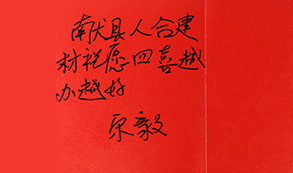 南犬县人合建
材祝愿四喜越
办越好
泉毅